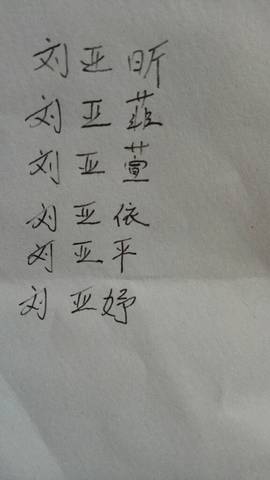 刘亚昕
刘亚蕴
刘亚萱
刘亚依
刘亚平
刘亚妤